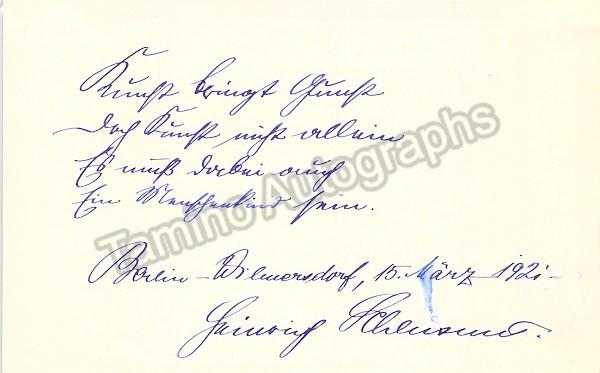 Kunst bringt Gunst
Doch Kunst nicht allein
Es muß dabei auch
Ein Menschenkind sein.
Tamino Autographs
Berlin-Wilmersdorf, 15. März 1921
Heinrich Schlusnus.